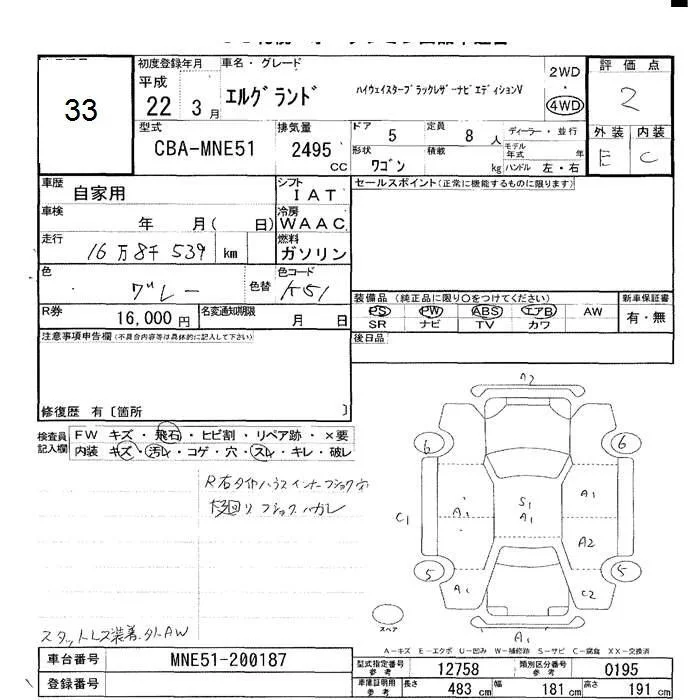 33
初度登録年月
平成
22 3月
車名・グレード
エルグランド ハイウェイスターブラックレザーナビエディションV
2WD
・
4WD
評価点
2
外装 内装
E C
型式
CBA-MNE51
排気量
2495 CC
ドア 5
定員 8 人
ディーラー・並行
モデル年式 年
形状 ワゴン
積載 kg
ハンドル 左・右
車歴 自家用
シフト IAT
車検 年 月( 日)
冷房 WAAC
走行 16万8千539 km
燃料 ガソリン
色 グレー 色替
色コード K51
R券 16,000円
名変通知期限 月 日
セールスポイント(正常に機能するものに限ります)
装備品(純正品に限り○をつけてください) 新車保証書
PS PW ABS エアB AW 有・無
SR ナビ TV カワ
後日品
注意事項申告欄(不具合内容等は具体的に記入して下さい)
修復歴 有〔箇所 〕
検査員記入欄
FW キズ・飛石・ヒビ割・リペア跡・×要
内装 キズ・汚れ・コゲ・穴・スレ・キレ・破レ
R右タイヤハウスインナーフショク穴
下廻りフショクハガレ
スタットレス装着.タトAW
A2
6 6
A1 S1 A1 A1
C1 A2
5 5
A1 C2
A1
スペア
A−キズ E−エクボ U−凹み W−補修跡 S−サビ C−腐食 XX−交換済
車台番号 MNE51-200187
登録番号
型式指定番号参考 12758
類別区分番号参考 0195
車庫証明用参考 長さ 483 cm 幅 181 cm 高さ 191 cm